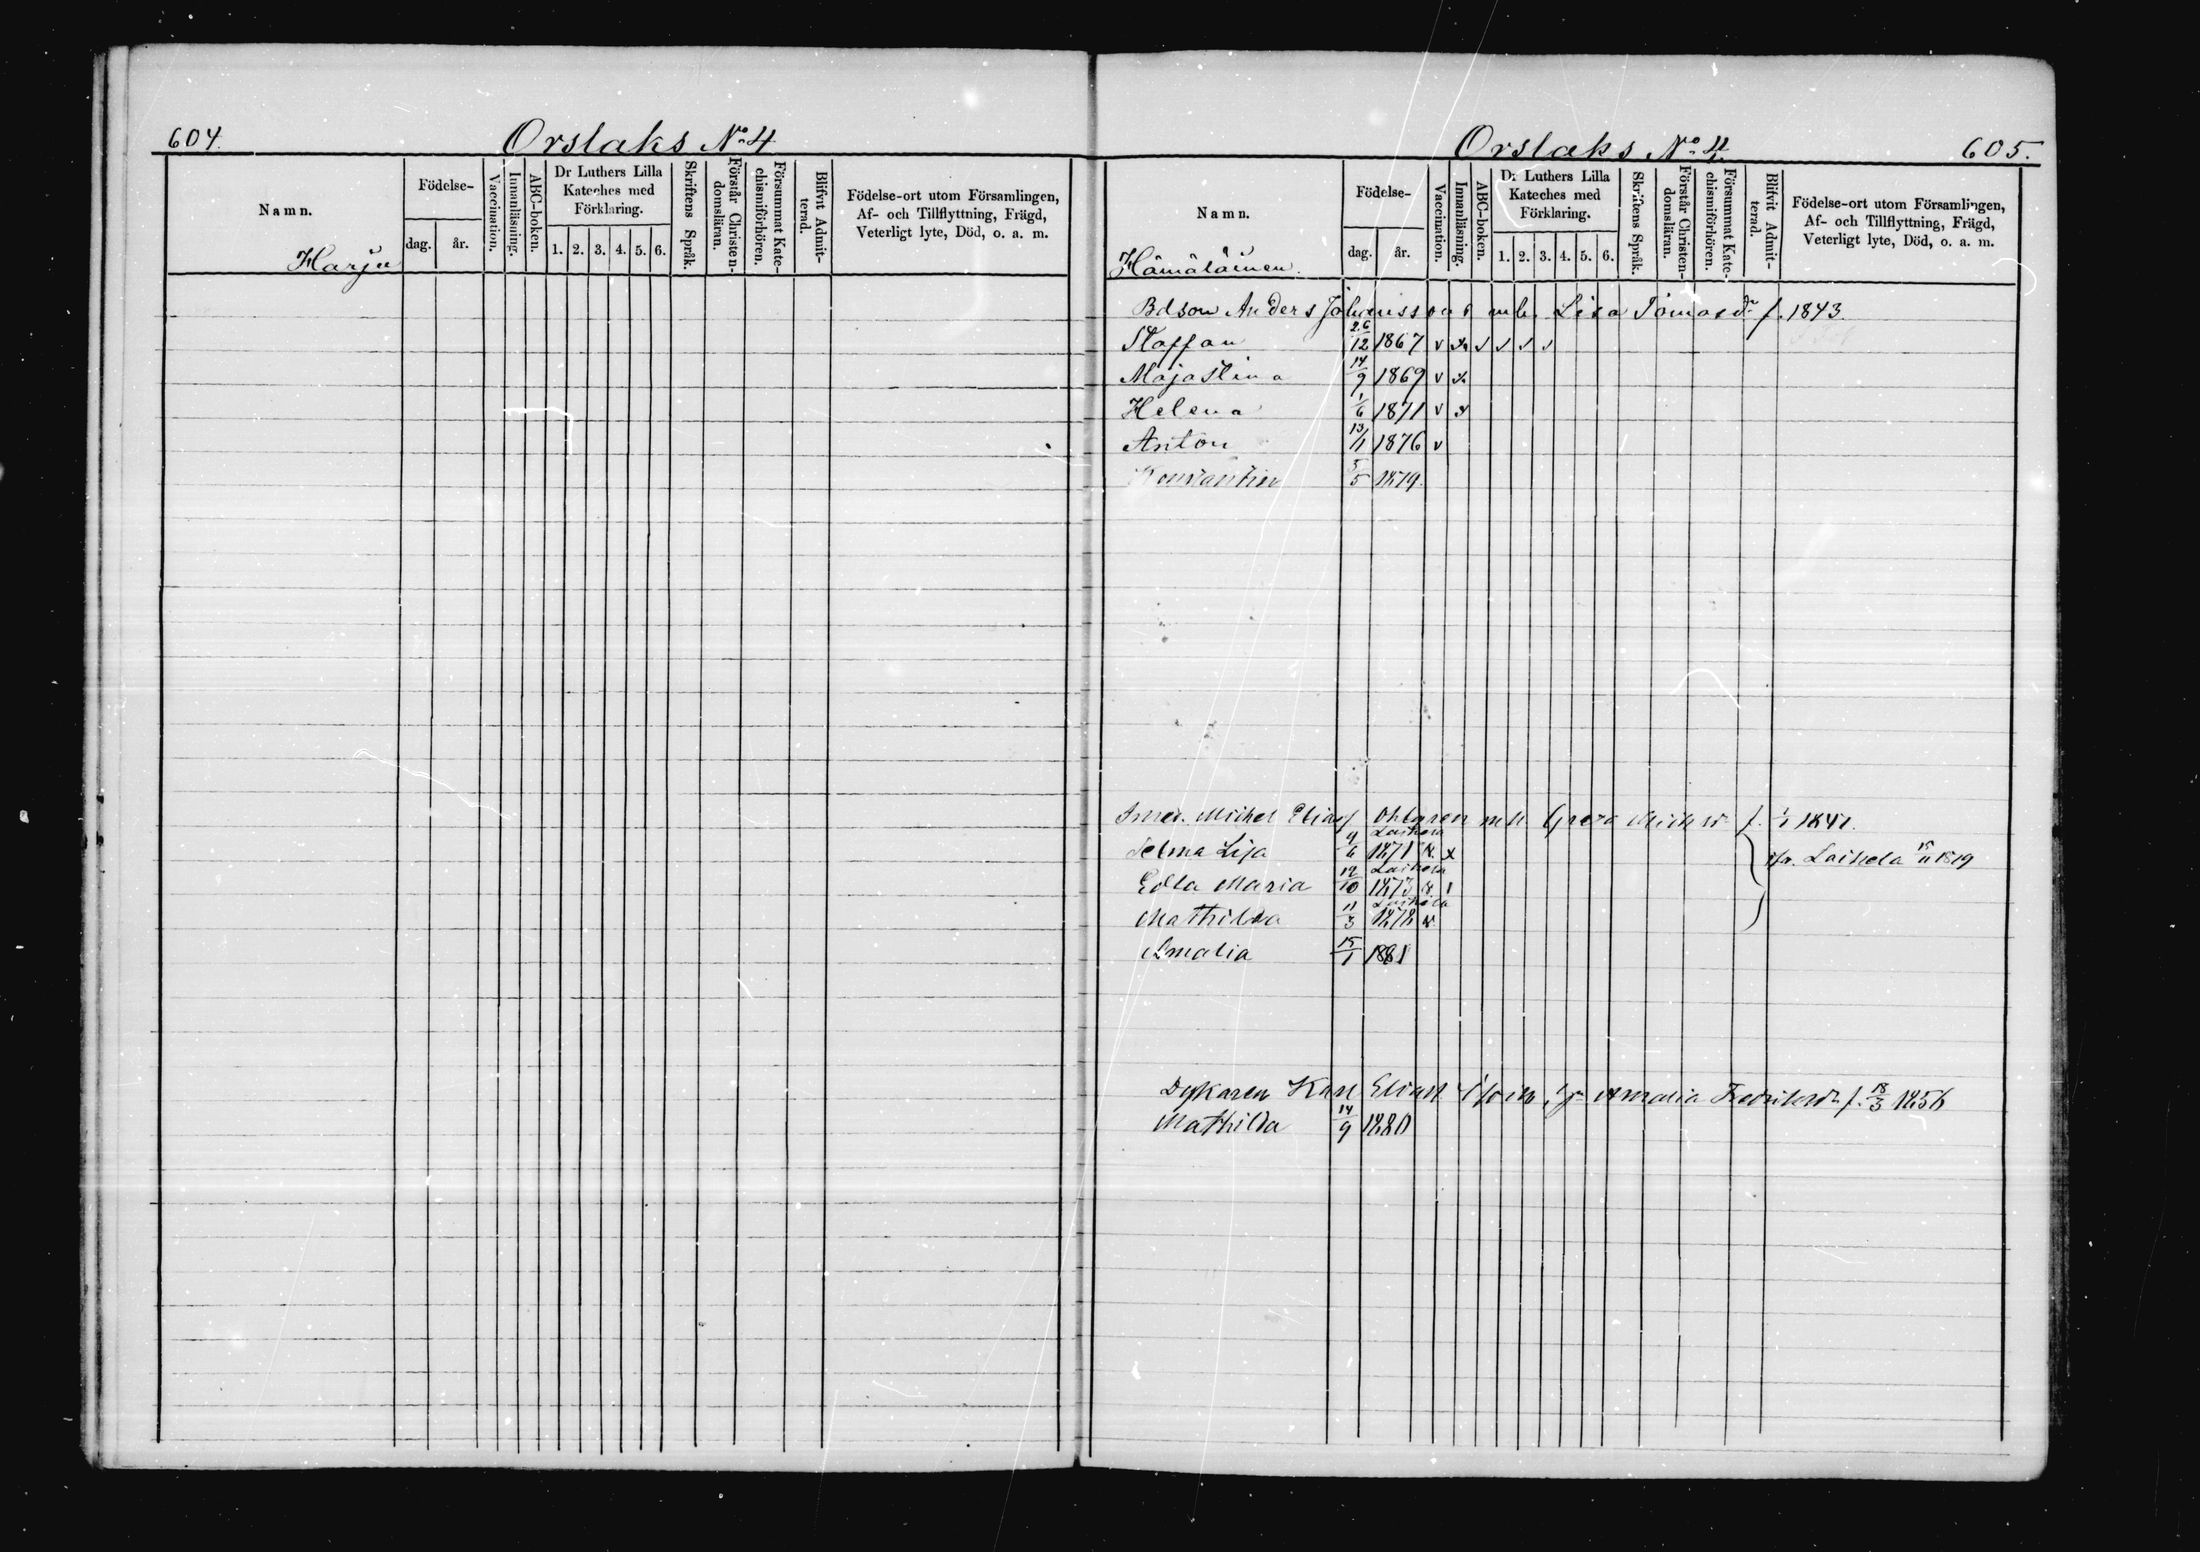 604.
Orslaks No 4
Namn.
Födelse-
dag. år.
Vaccination.
Innanläsning.
ABC-boken.
Dr Luthers Lilla
Kateches med
Förklaring.
1. 2. 3. 4. 5. 6.
Skriftens Språk.
Förstår Christen-
domsläran.
Försummat Kate-
chismiförhören.
Blifvit Admit-
terad.
Födelse-ort utom Församlingen,
Af- och Tillflyttning, Frägd,
Veterligt lyte, Död, o. a. m.
Harju
Orslaks No 4.
605.
Namn.
Födelse-
dag. år.
Vaccination.
Innanläsning.
ABC-boken.
Dr Luthers Lilla
Kateches med
Förklaring.
1. 2. 3. 4. 5. 6.
Skriftens Språk.
Förstår Christen-
domsläran.
Försummat Kate-
chismiförhören.
Blifvit Admit-
terad.
Födelse-ort utom Församlingen,
Af- och Tillflyttning, Frägd,
Veterligt lyte, Död, o. a. m.
Hämäläinen.
Bdson Anders Johansson o mh. Lisa Tomasdr f. 1843.
Staffan 26/12 1867 v x
Maja Stina 14/9 1869 v x
Helena 1/6 1871 v x
Anton 13/1 1876 v
Konstantin 5/5 1879.
Michel Eliass mh. Greta f. 1/1 1841.
Laihela
Selma Lisa 4/6 1871 v. x
fr. Laihela 15/11 1879
Laihela
Edla Maria 12/10 1873 v. 1
Laihela
Mathilda 11/3 1878 v.
Amalia 15/1 1881
Dykaren Karl Eliass Amalia Fredriksdr f. 18/3 1856
Mathilda 14/9 1880